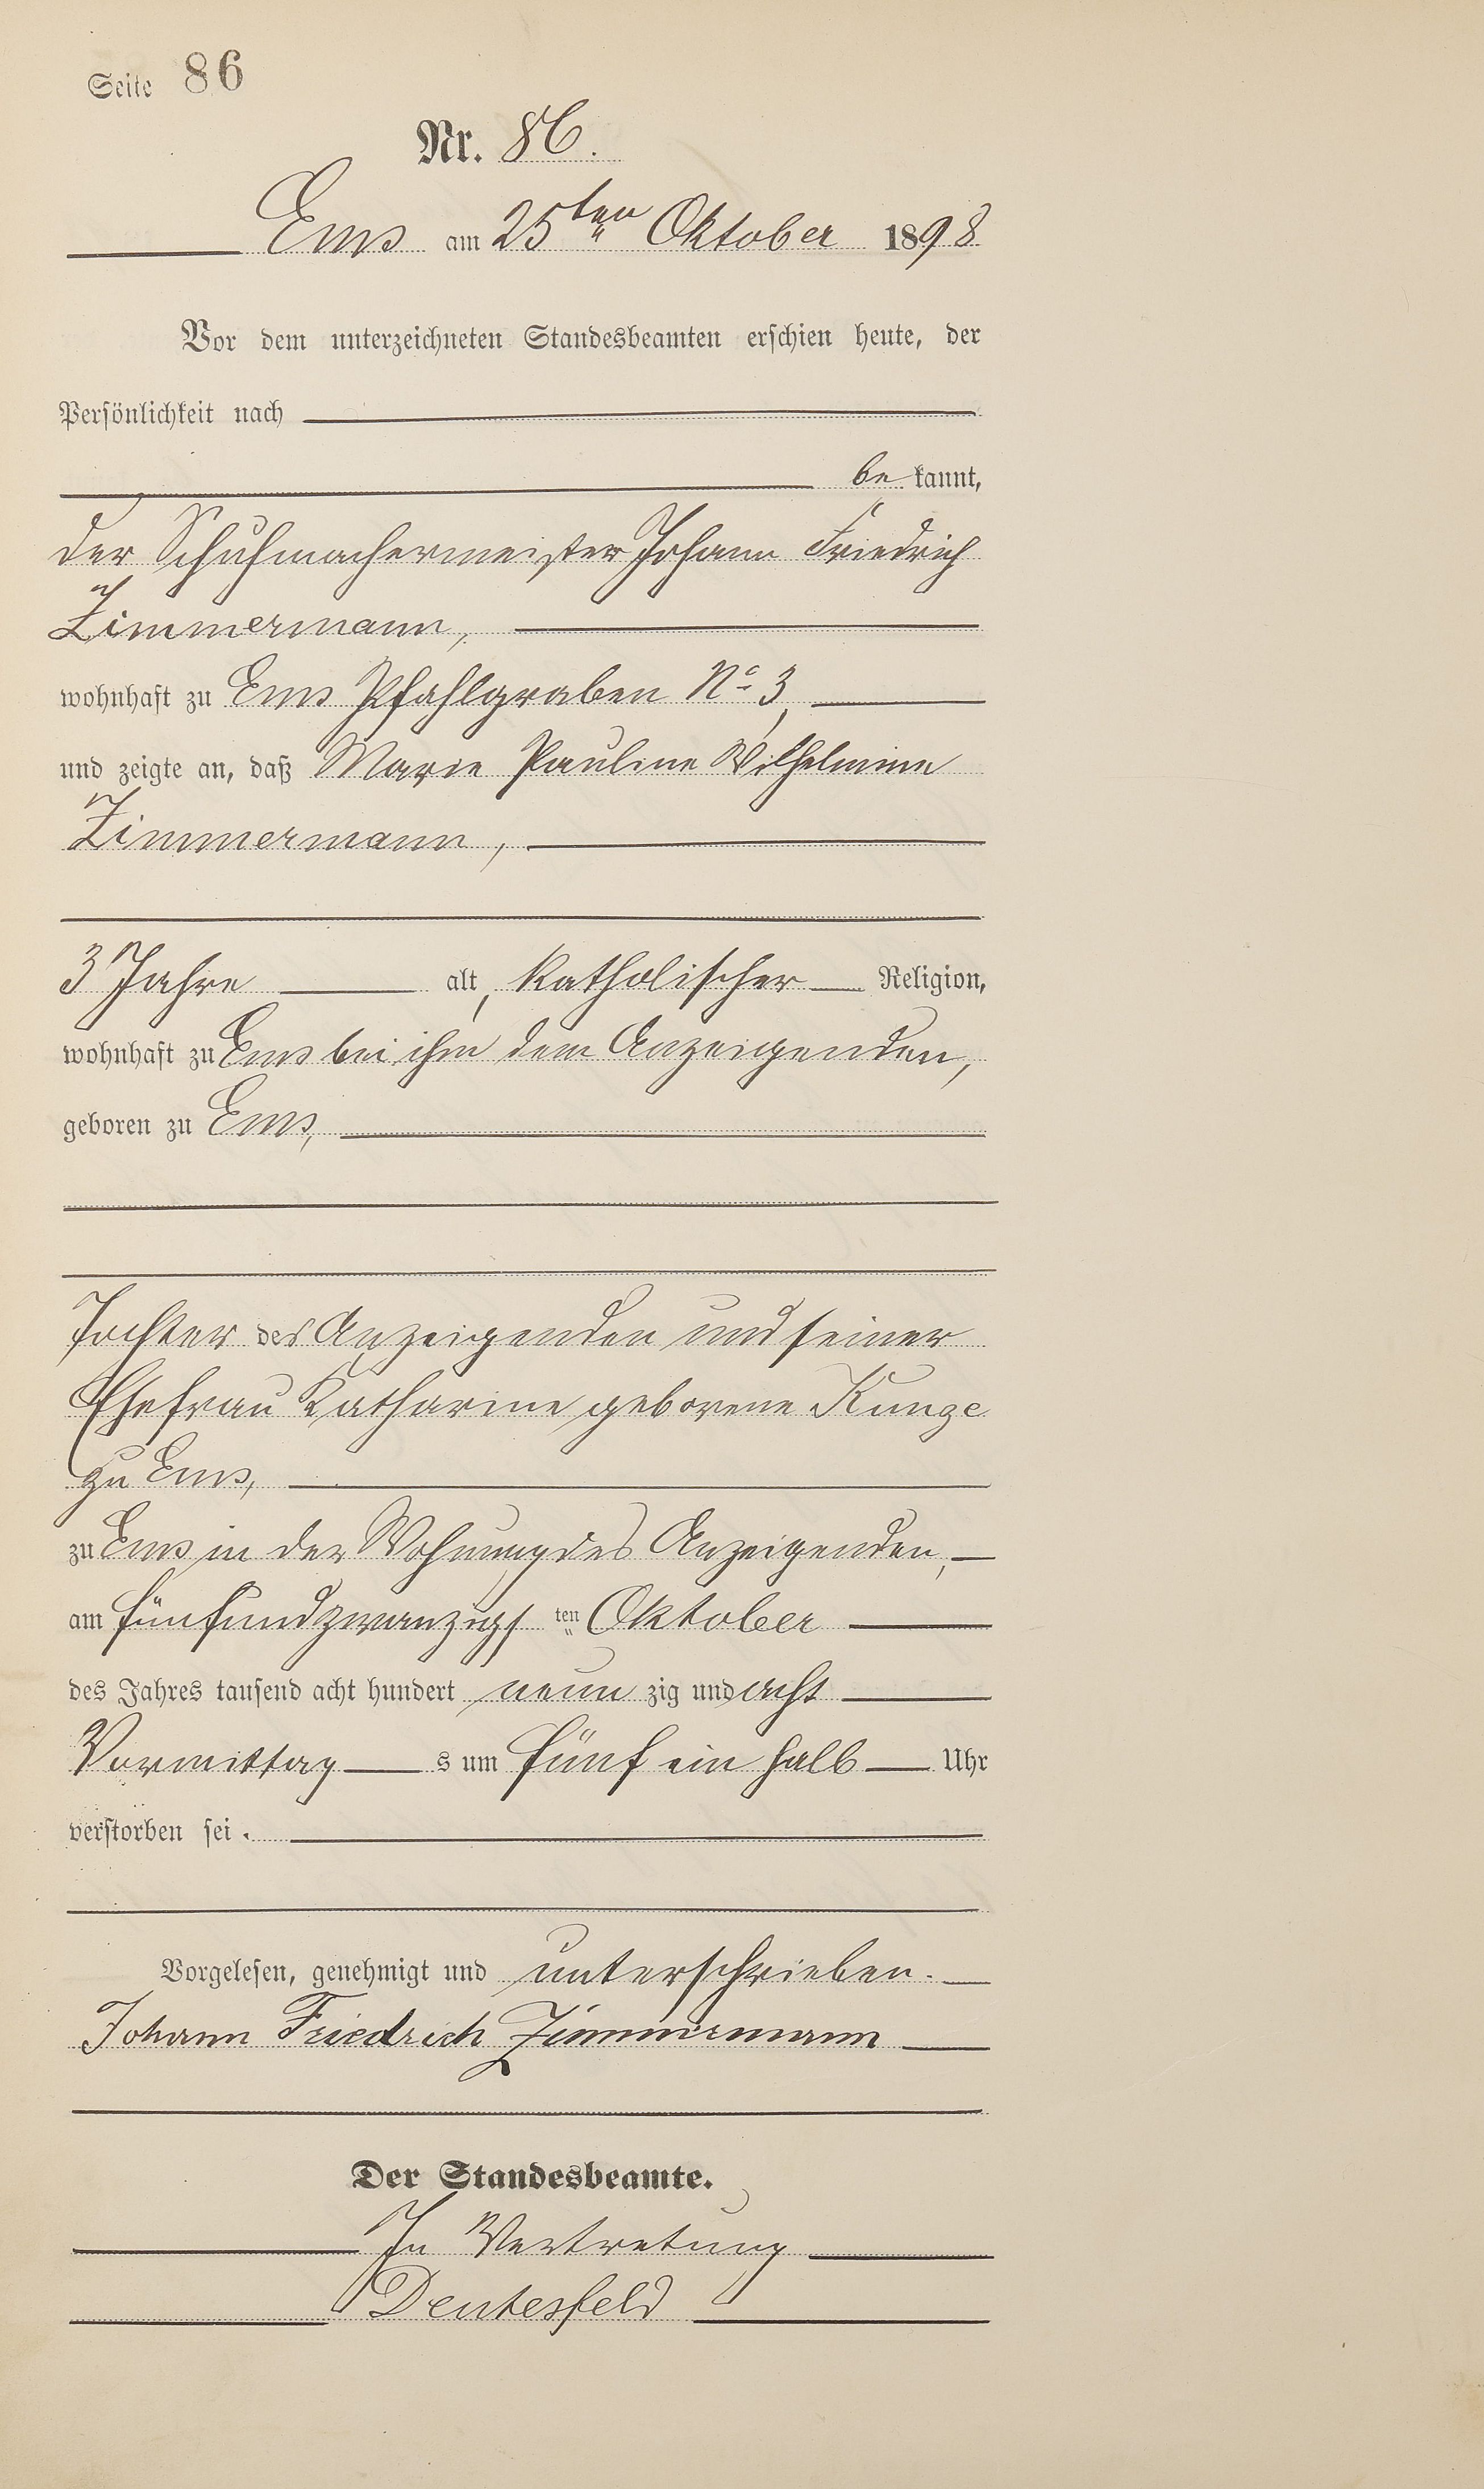 Seite 86
Nr. 86.
Ems am 25ten Oktober 1898
Vor dem unterzeichneten Standesbeamten erschien heute, der
Persönlichkeit nach
be kannt,
der Schuhmachermeister Johann Friedrich
Zimmermann,
wohnhaft zu Ems Pfahlgraben No 3,
und zeigte an, daß Marie Pauline Wilhelmine
Zimmermann,
3 Jahre alt, katholischer Religion,
wohnhaft zu Ems bei ihm dem Anzeigenden,
geboren zu Ems,
Tochter des Anzeigenden und seiner
Ehefrau Katharine geborene Kunze
zu Ems,
zu Ems in der Wohnung des Anzeigenden,
am fünfundzwanzigs ten Oktober
des Jahres tausend acht hundert neun zig und acht
Vormittag s um fünf ein halb Uhr
verstorben sei.
Vorgelesen, genehmigt und unterschrieben.
Johann Friedrich Zimmermann
Der Standesbeamte.
In Vertretung